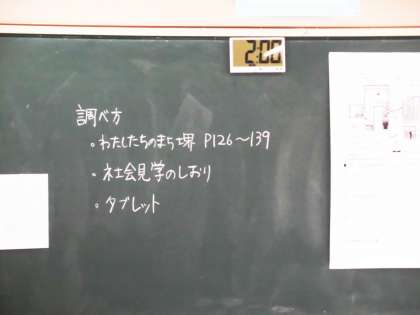 2:00
調べ方
。わたしたちのまち堺 P126〜139
。社会見学のしおり
。タブレット